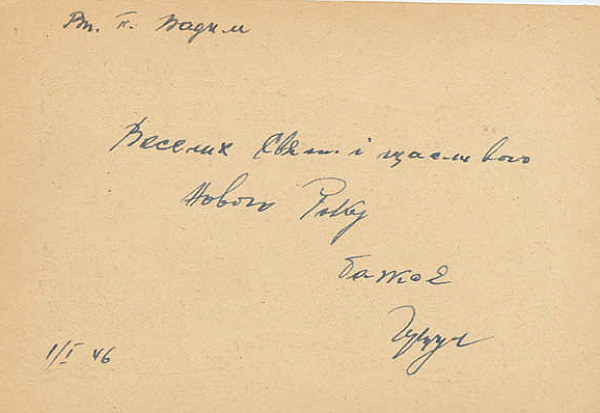 Вп. п. Вадим
Веселих Свят і щасливого
Нового Року
бажає
1/I 46